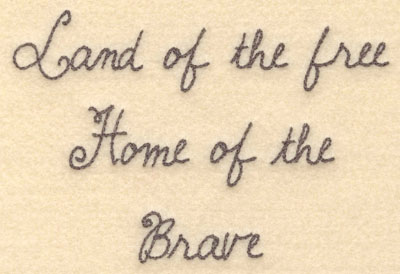 Land of the free
Home of the
Brave